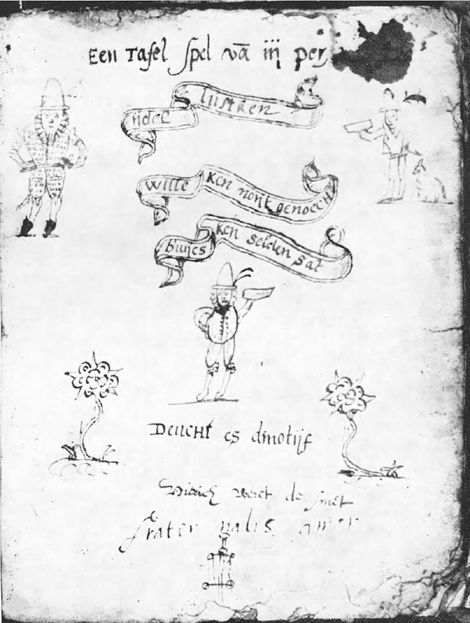 Een Tafel spel vā iij per
ijdel lustken
wille ken nont genoech
buijes ken selden sat
Deucht es dmotijf
de smet
frater nalis amor